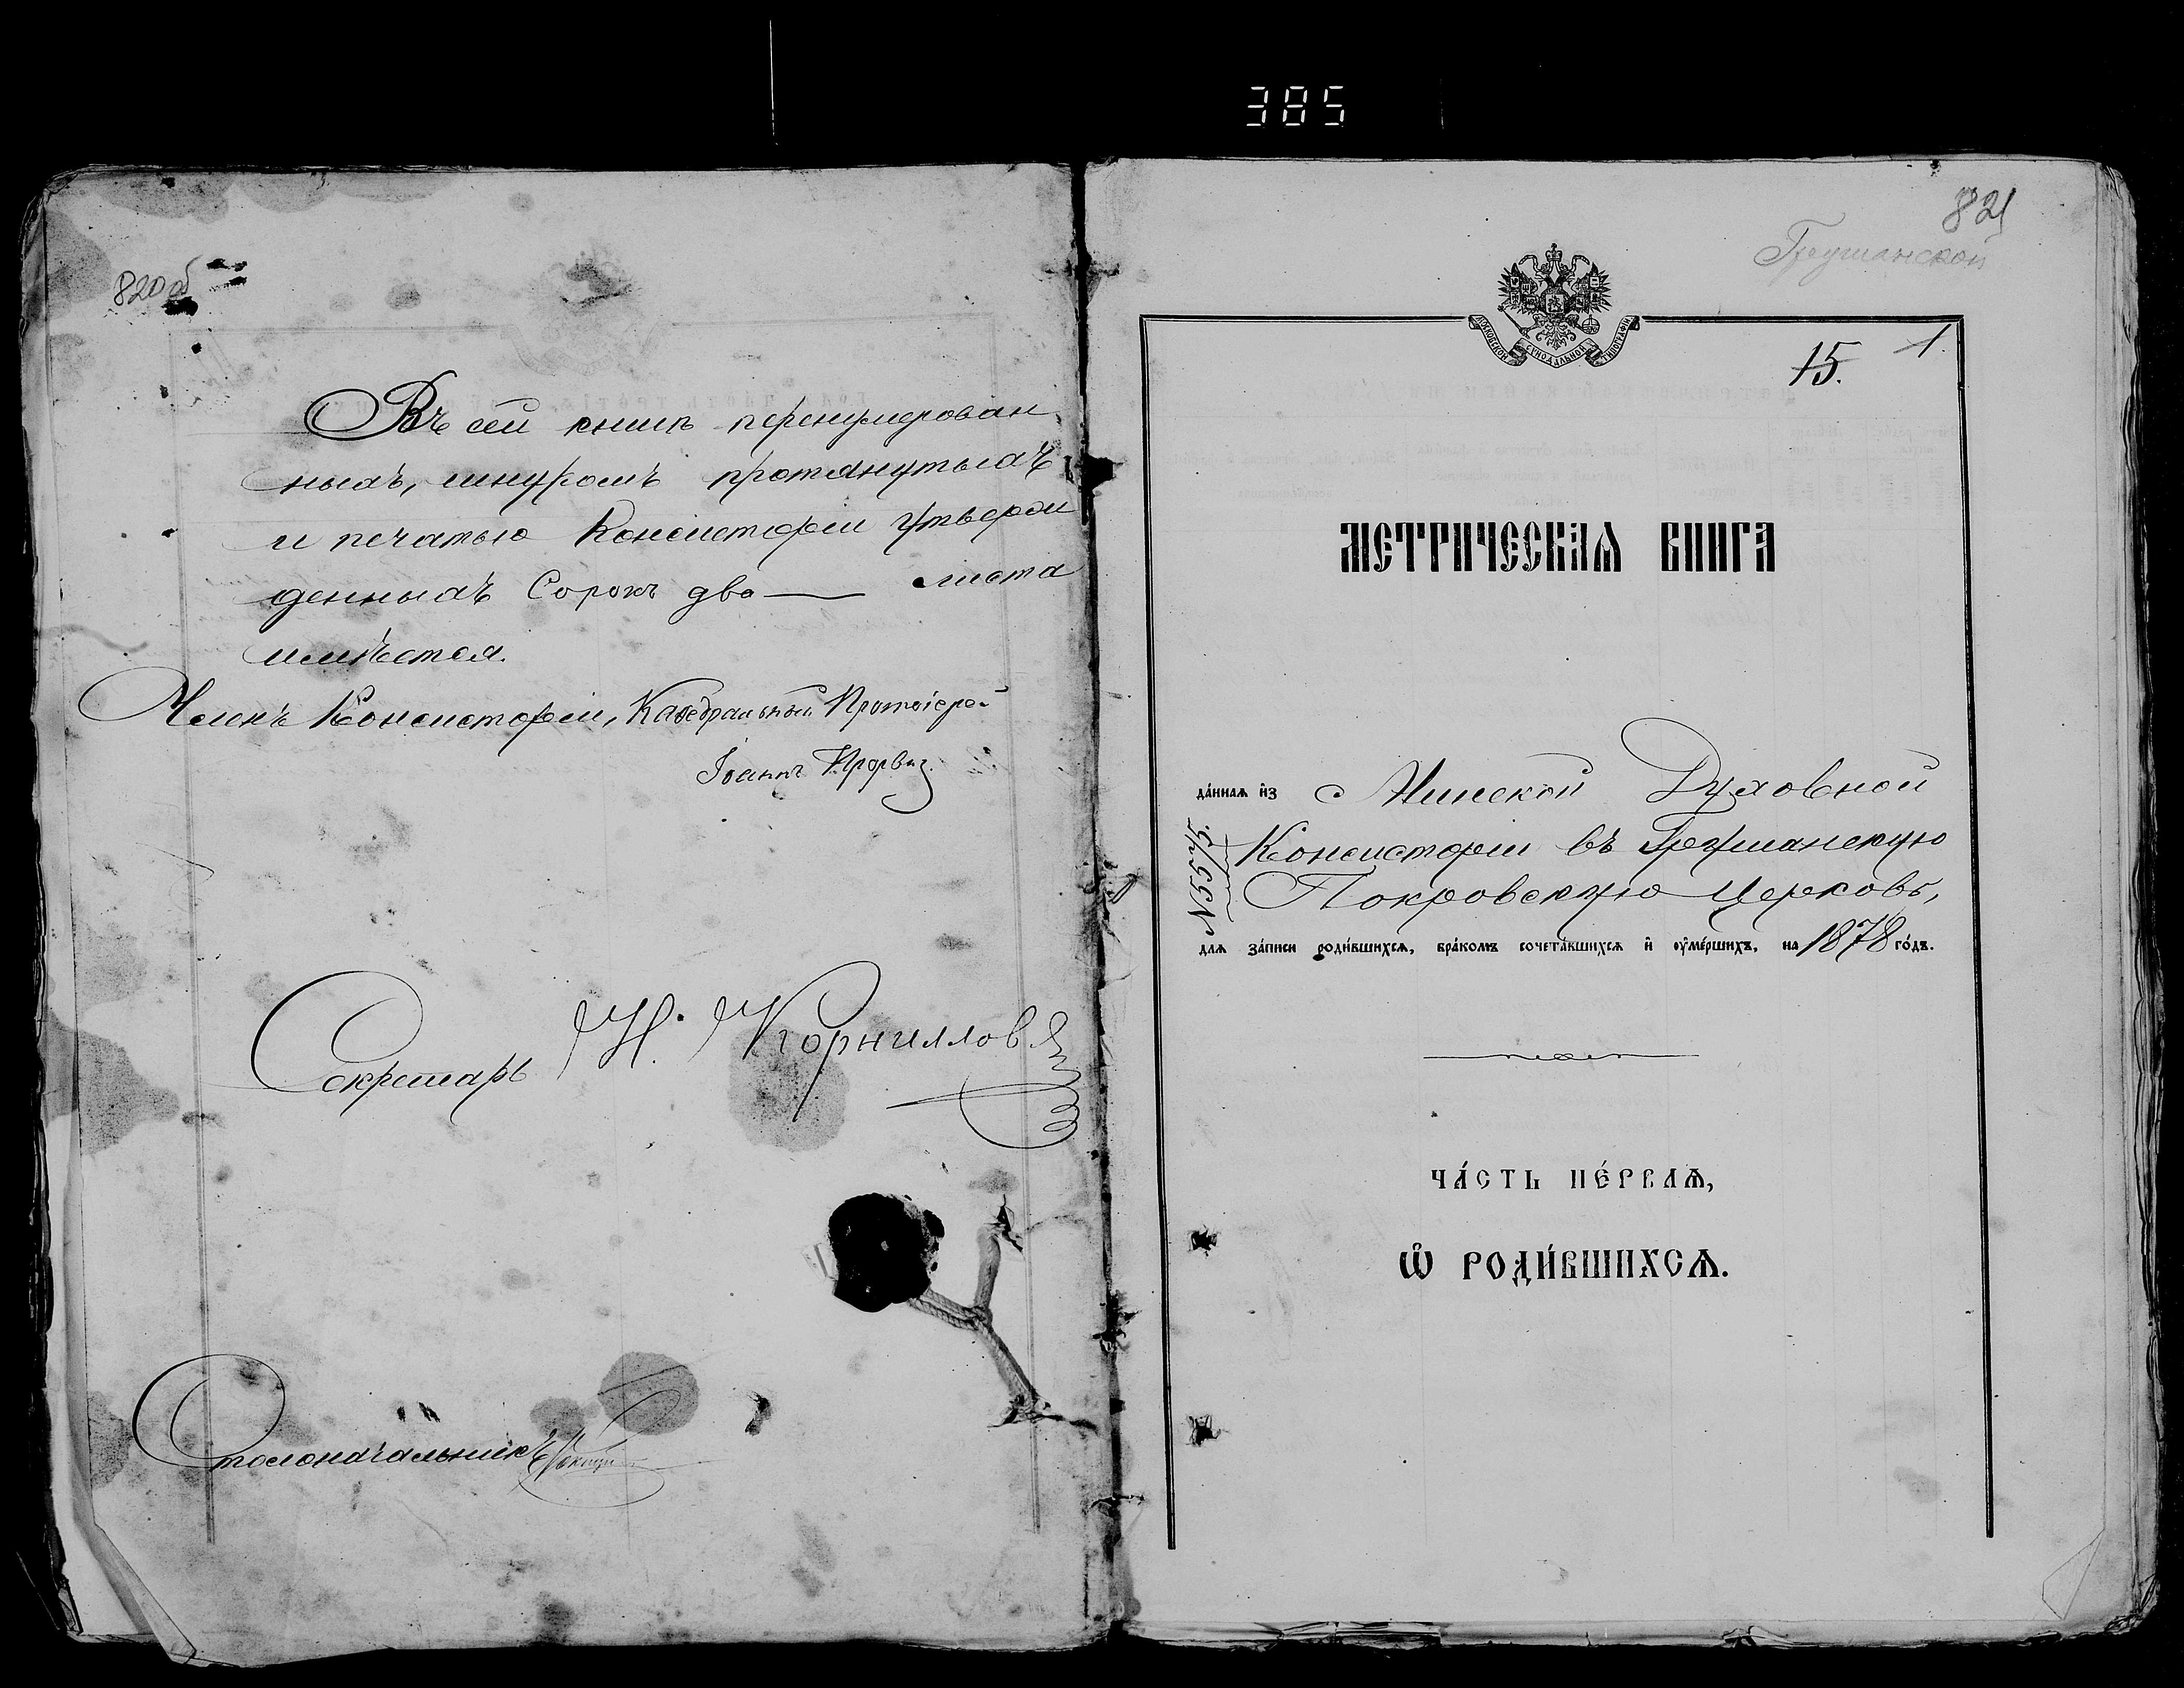 385
820об
Въ сей книгѣ перенумерован
ныхъ, шнуромъ протянутыхъ
и печатью Консисторіи утверж
денныхъ Сорокъ два — листа
имѣется.
Членъ Консисторіи, Каѳедральный Протоіерей
Іоаннъ
Секретарь Н. Корниллов
Столоначальникъ
821
Грушанской
МОСКОВСКОЙ СѴНОДАЛЬНОЙ ТИПОГРАФІИ
15. 1.
МЕТРИЧЕСКАѦ КНИГА
да́ннаѧ и҆з Минской Духовной
Консисторіи въ Грушанскую
Покровскую Церковь,
длѧ за́писи роди́вшихсѧ, бра́комъ сочета́вшихсѧ и҆ ᲂу҆ме́ршихъ, на 1878 го́дъ.
ЧА́СТЬ ПЕ́РВАѦ,
Ѽ РОДИ́ВШИХСѦ.